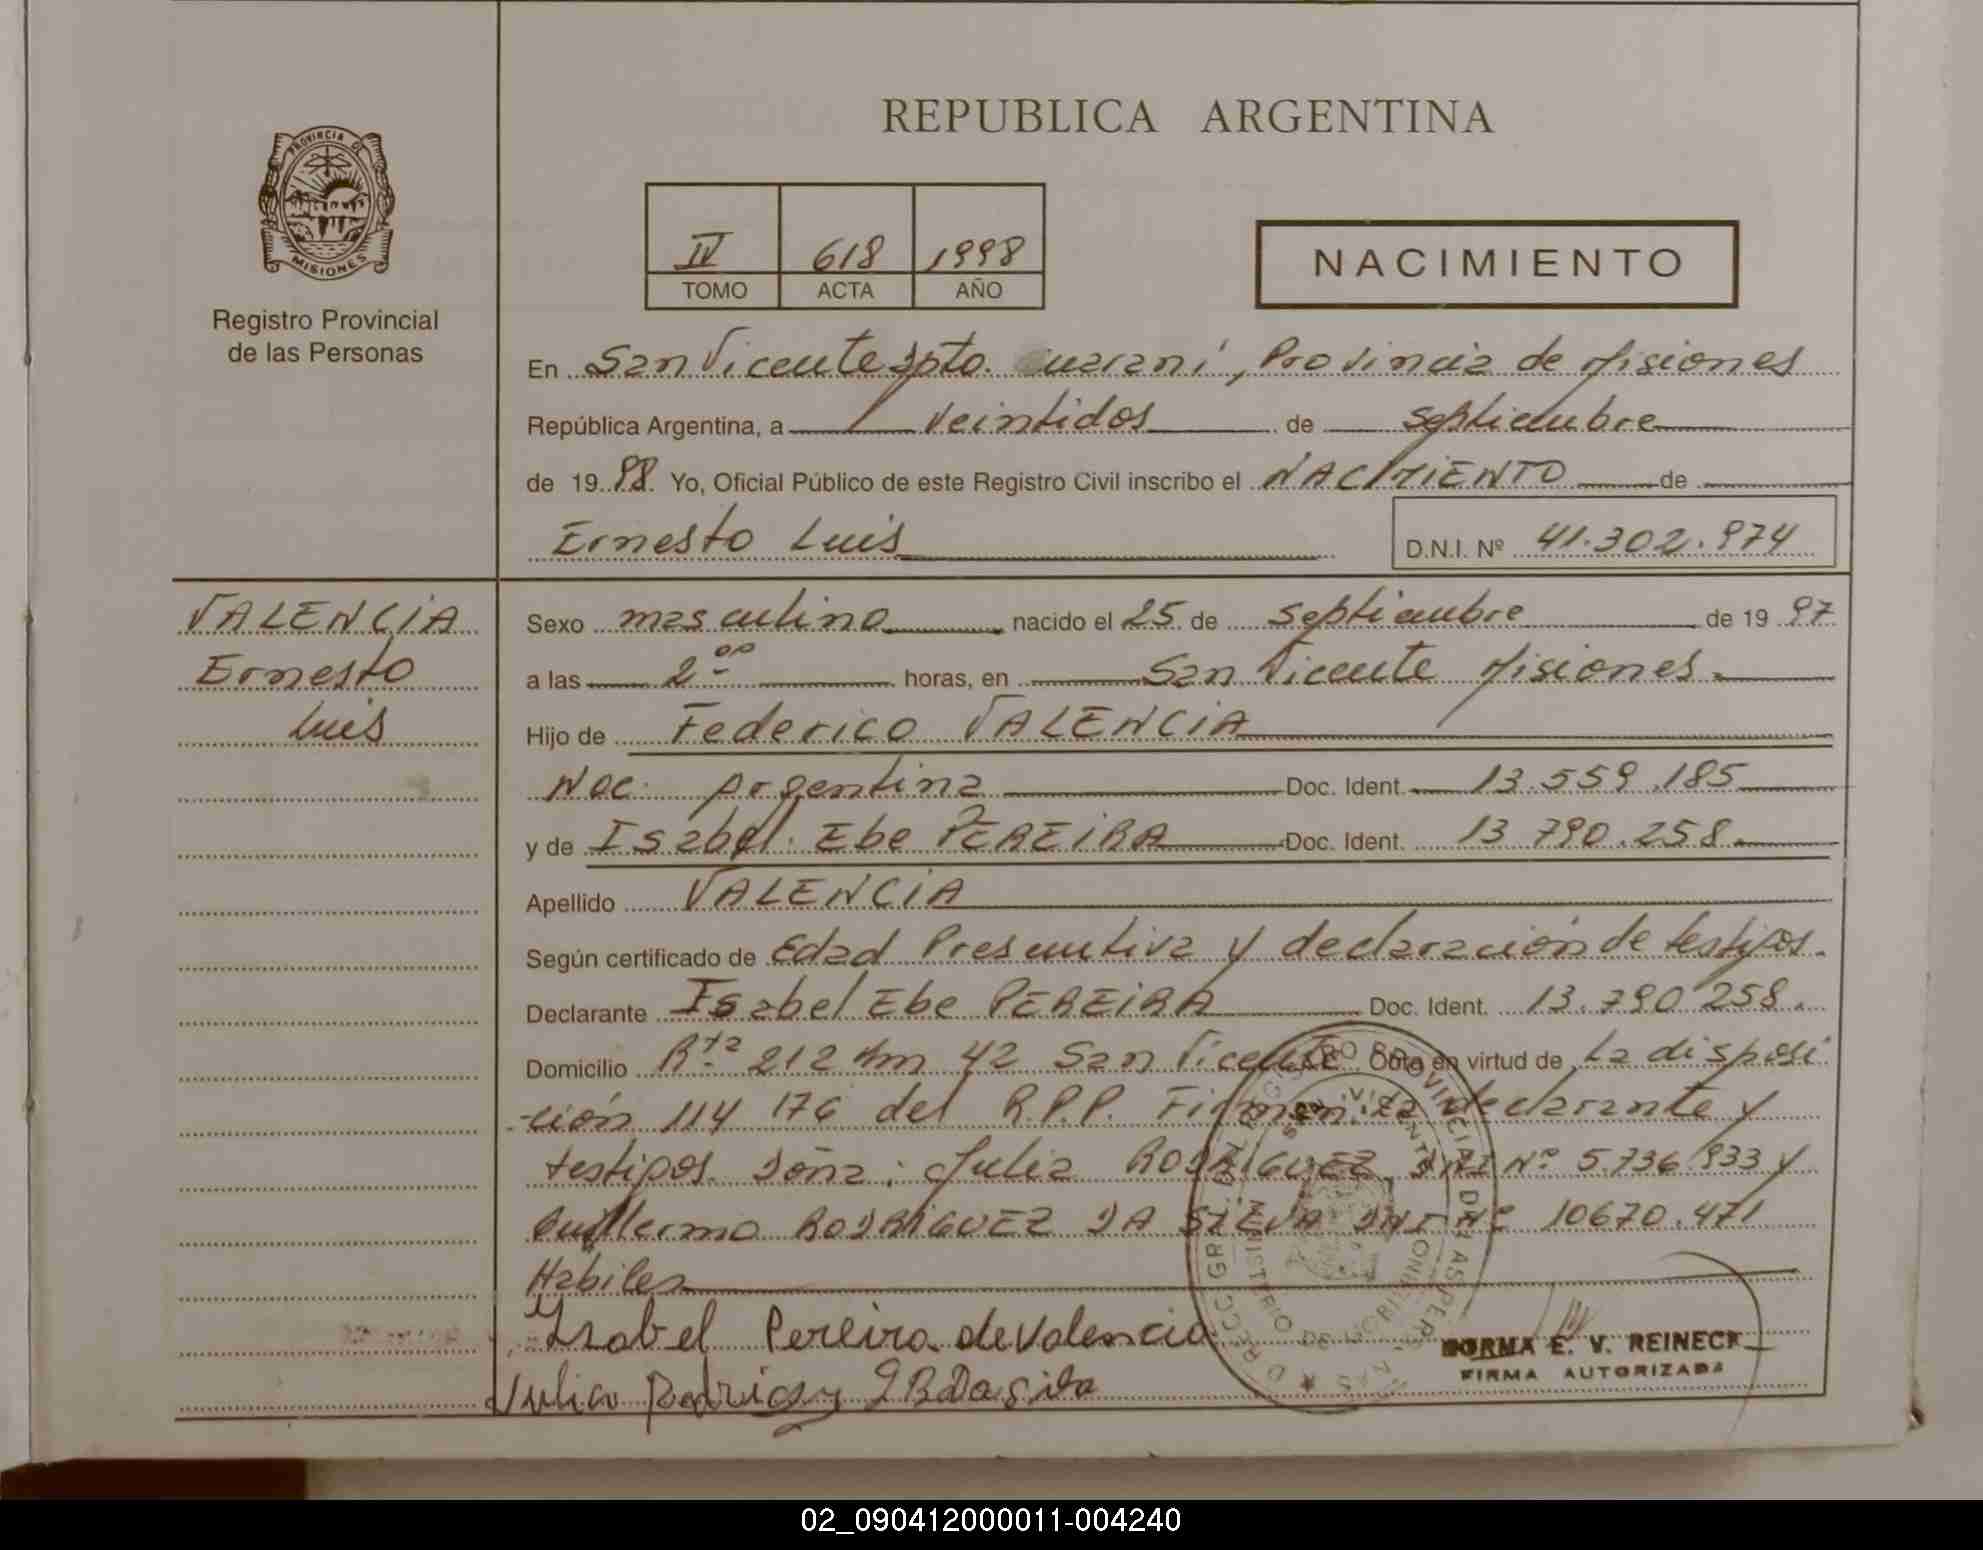 REPUBLICA ARGENTINA
PROVINCIA DE
MISIONES
Registro Provincial
de las Personas
IV 618 1998
TOMO ACTA AÑO
NACIMIENTO
En San Vicente Dpto. Guarani, Provincia de Misiones
República Argentina, a veintidos de septiembre
de 1998 Yo, Oficial Público de este Registro Civil inscribo el NACIMIENTO de
Ernesto Luis
D.N.I. Nº 41.302.974
VALENCIA
Ernesto
Luis
Sexo masculino nacido el 25 de septiembre de 1997
a las 2 00 horas, en San Vicente Misiones
Hijo de Federico VALENCIA
Nac. Argentina Doc. Ident. 13.559.185
y de Isabel Ebe PEREIRA Doc. Ident. 13.790.258
Apellido VALENCIA
Según certificado de Edad Presuntiva y declaración de testigos.
Declarante Isabel Ebe PEREIRA Doc. Ident. 13.790.258.
Domicilio Rta 212 Km 42 San Vicente Obra en virtud de La disposi
-ción 114/176 del R.P.P. Firman: La declarante y
testigos Doña: Julia RODRIGUEZ, DNI Nº 5.736.933 y
Guillermo RODRIGUEZ DA SILVA DNI Nº 10670.471
Habiles
Ysabel Pereira de Valencia
Julia Rodrigu G R Da Silva
NORMA E. V. REINECK
FIRMA AUTORIZADA
02_090412000011-004240